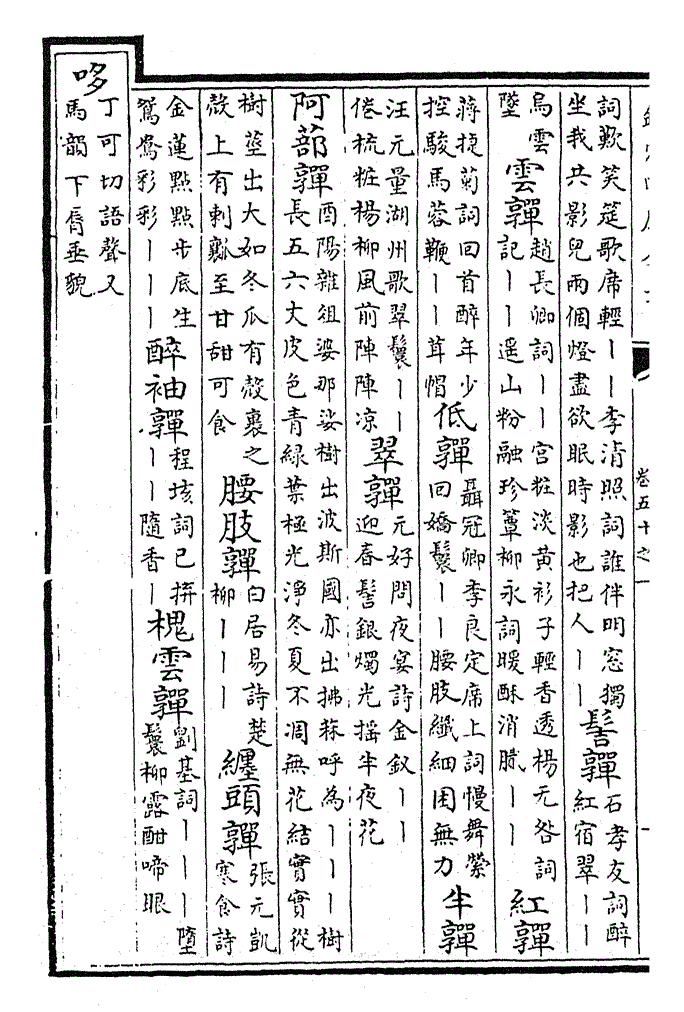 卷五十之一
詞歎笑筵歌席輕丨丨李清照詞誰伴明窓獨
坐我共影兒兩個燈盡欲眠時影也把人丨丨
髻嚲
石孝友詞醉
紅宿翠丨丨
烏雲
墜
雲嚲
趙長卿詞丨丨宫粧淡黄衫子輕香透楊无咎詞
記丨丨遥山粉融珍簟柳永詞暖酥消膩丨丨
紅嚲
蔣捷菊詞回首醉年少
控駿馬蓉鞭丨丨茸帽
低嚲
聶冠卿李良定席上詞慢舞縈
回嬌鬟丨丨腰肢纖細困無力
半嚲
汪元量湖州歌翠鬟丨丨
倦梳粧楊柳風前陣陣凉
翠嚲
元好問夜宴詩金釵丨丨
迎春髻銀燭光揺半夜花
阿蔀嚲
酉陽雜俎婆那娑樹出波斯國亦出拂菻呼為丨丨丨樹
長五六丈皮色青緑葉極光淨冬夏不凋無花結實實從
樹莖出大如冬瓜有殻裹之
殻上有刺瓤至甘甜可食
腰肢嚲
白居易詩楚
柳丨丨丨
纒頭嚲
張元凱
寒食詩
金蓮點點步底生
鴛鴦彩彩丨丨丨
醉袖嚲
程垓詞已拚
丨丨隨香丨
槐雲嚲
劉基詞丨丨丨墮
鬟柳露酣啼眼
哆
丁可切語聲又
馬韻下脣垂貌